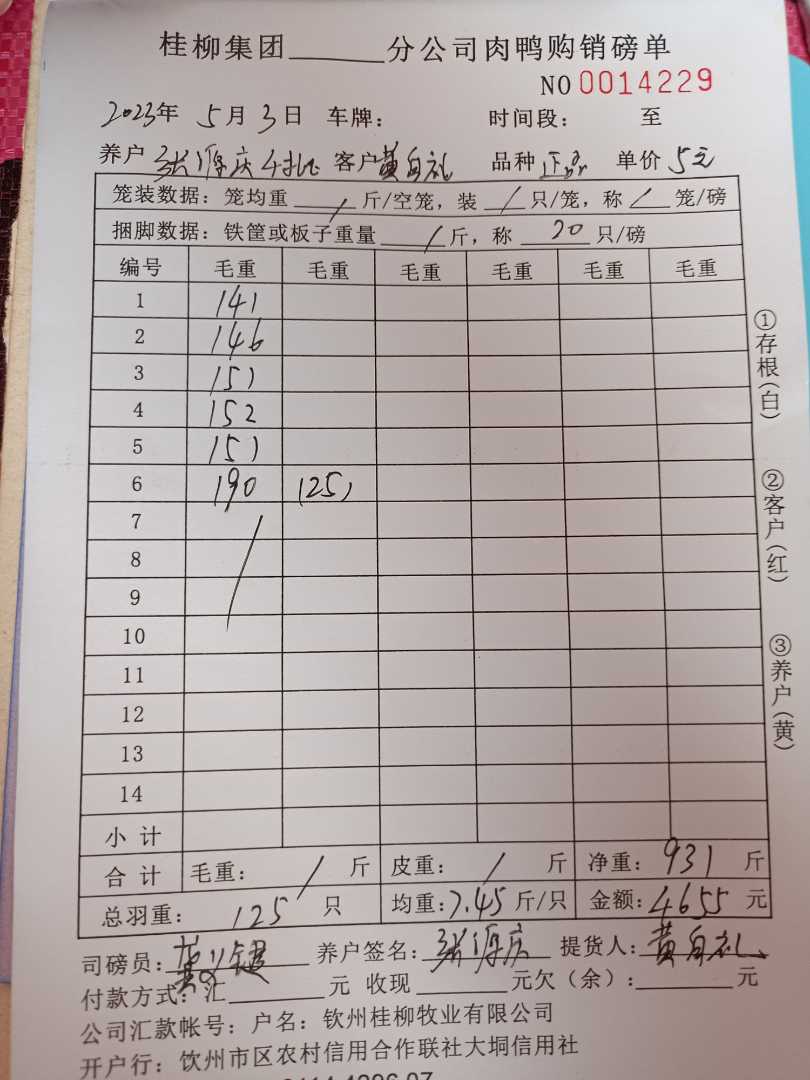 桂柳集团______分公司肉鸭购销磅单
NO 0014229
2023年 5月3日 车牌： 时间段： 至
养户 张源庆 客户 黄自礼 品种 单价 5元
笼装数据：笼均重 / 斤/空笼，装 / 只/笼，称 / 笼/磅
捆脚数据：铁筐或板子重量 / 斤，称 20 只/磅
编号 毛重 毛重 毛重 毛重 毛重 毛重
1 141
2 146
3 151
4 152
5 151
6 190 (25)
7
8
9
10
11
12
13
14
小计
合计 毛重： / 斤 皮重： / 斤 净重：931 斤
总羽重： 125 只 均重：7.45 斤/只 金额：4655 元
司磅员： 养户签名：张源庆 提货人：黄自礼
付款方式：汇______元 收现______元欠（余）：______元
公司汇款帐号：户名：钦州桂柳牧业有限公司
开户行：饮州市区农村信用合作联社大垌信用社
①存根（白）
②客户（红）
③养户（黄）